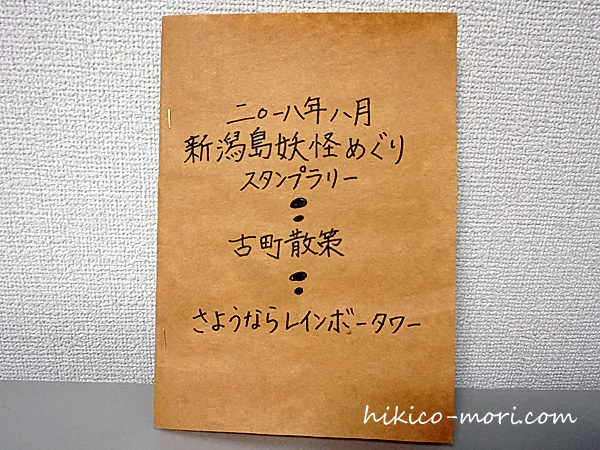 二〇一八年八月
新潟島妖怪めぐり
スタンプラリー
古町散策
さようならレインボータワー
hikico-mori.com